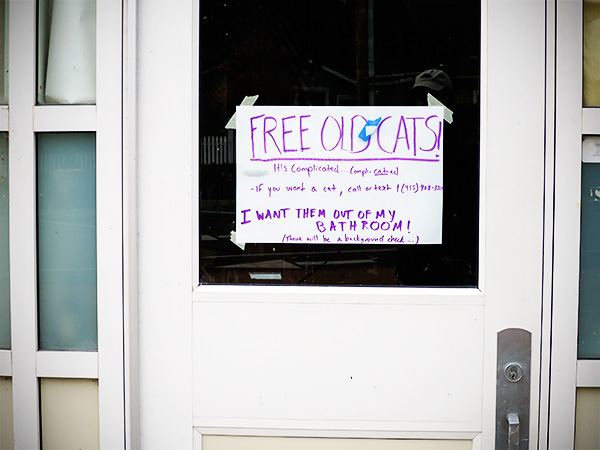 FREE OLD CATS!
It's Complicated... (compli-cat-ed)
- If you want a cat, call or text 1 (415)
I WANT THEM OUT OF MY
BATHROOM!
(There will be a background check...)